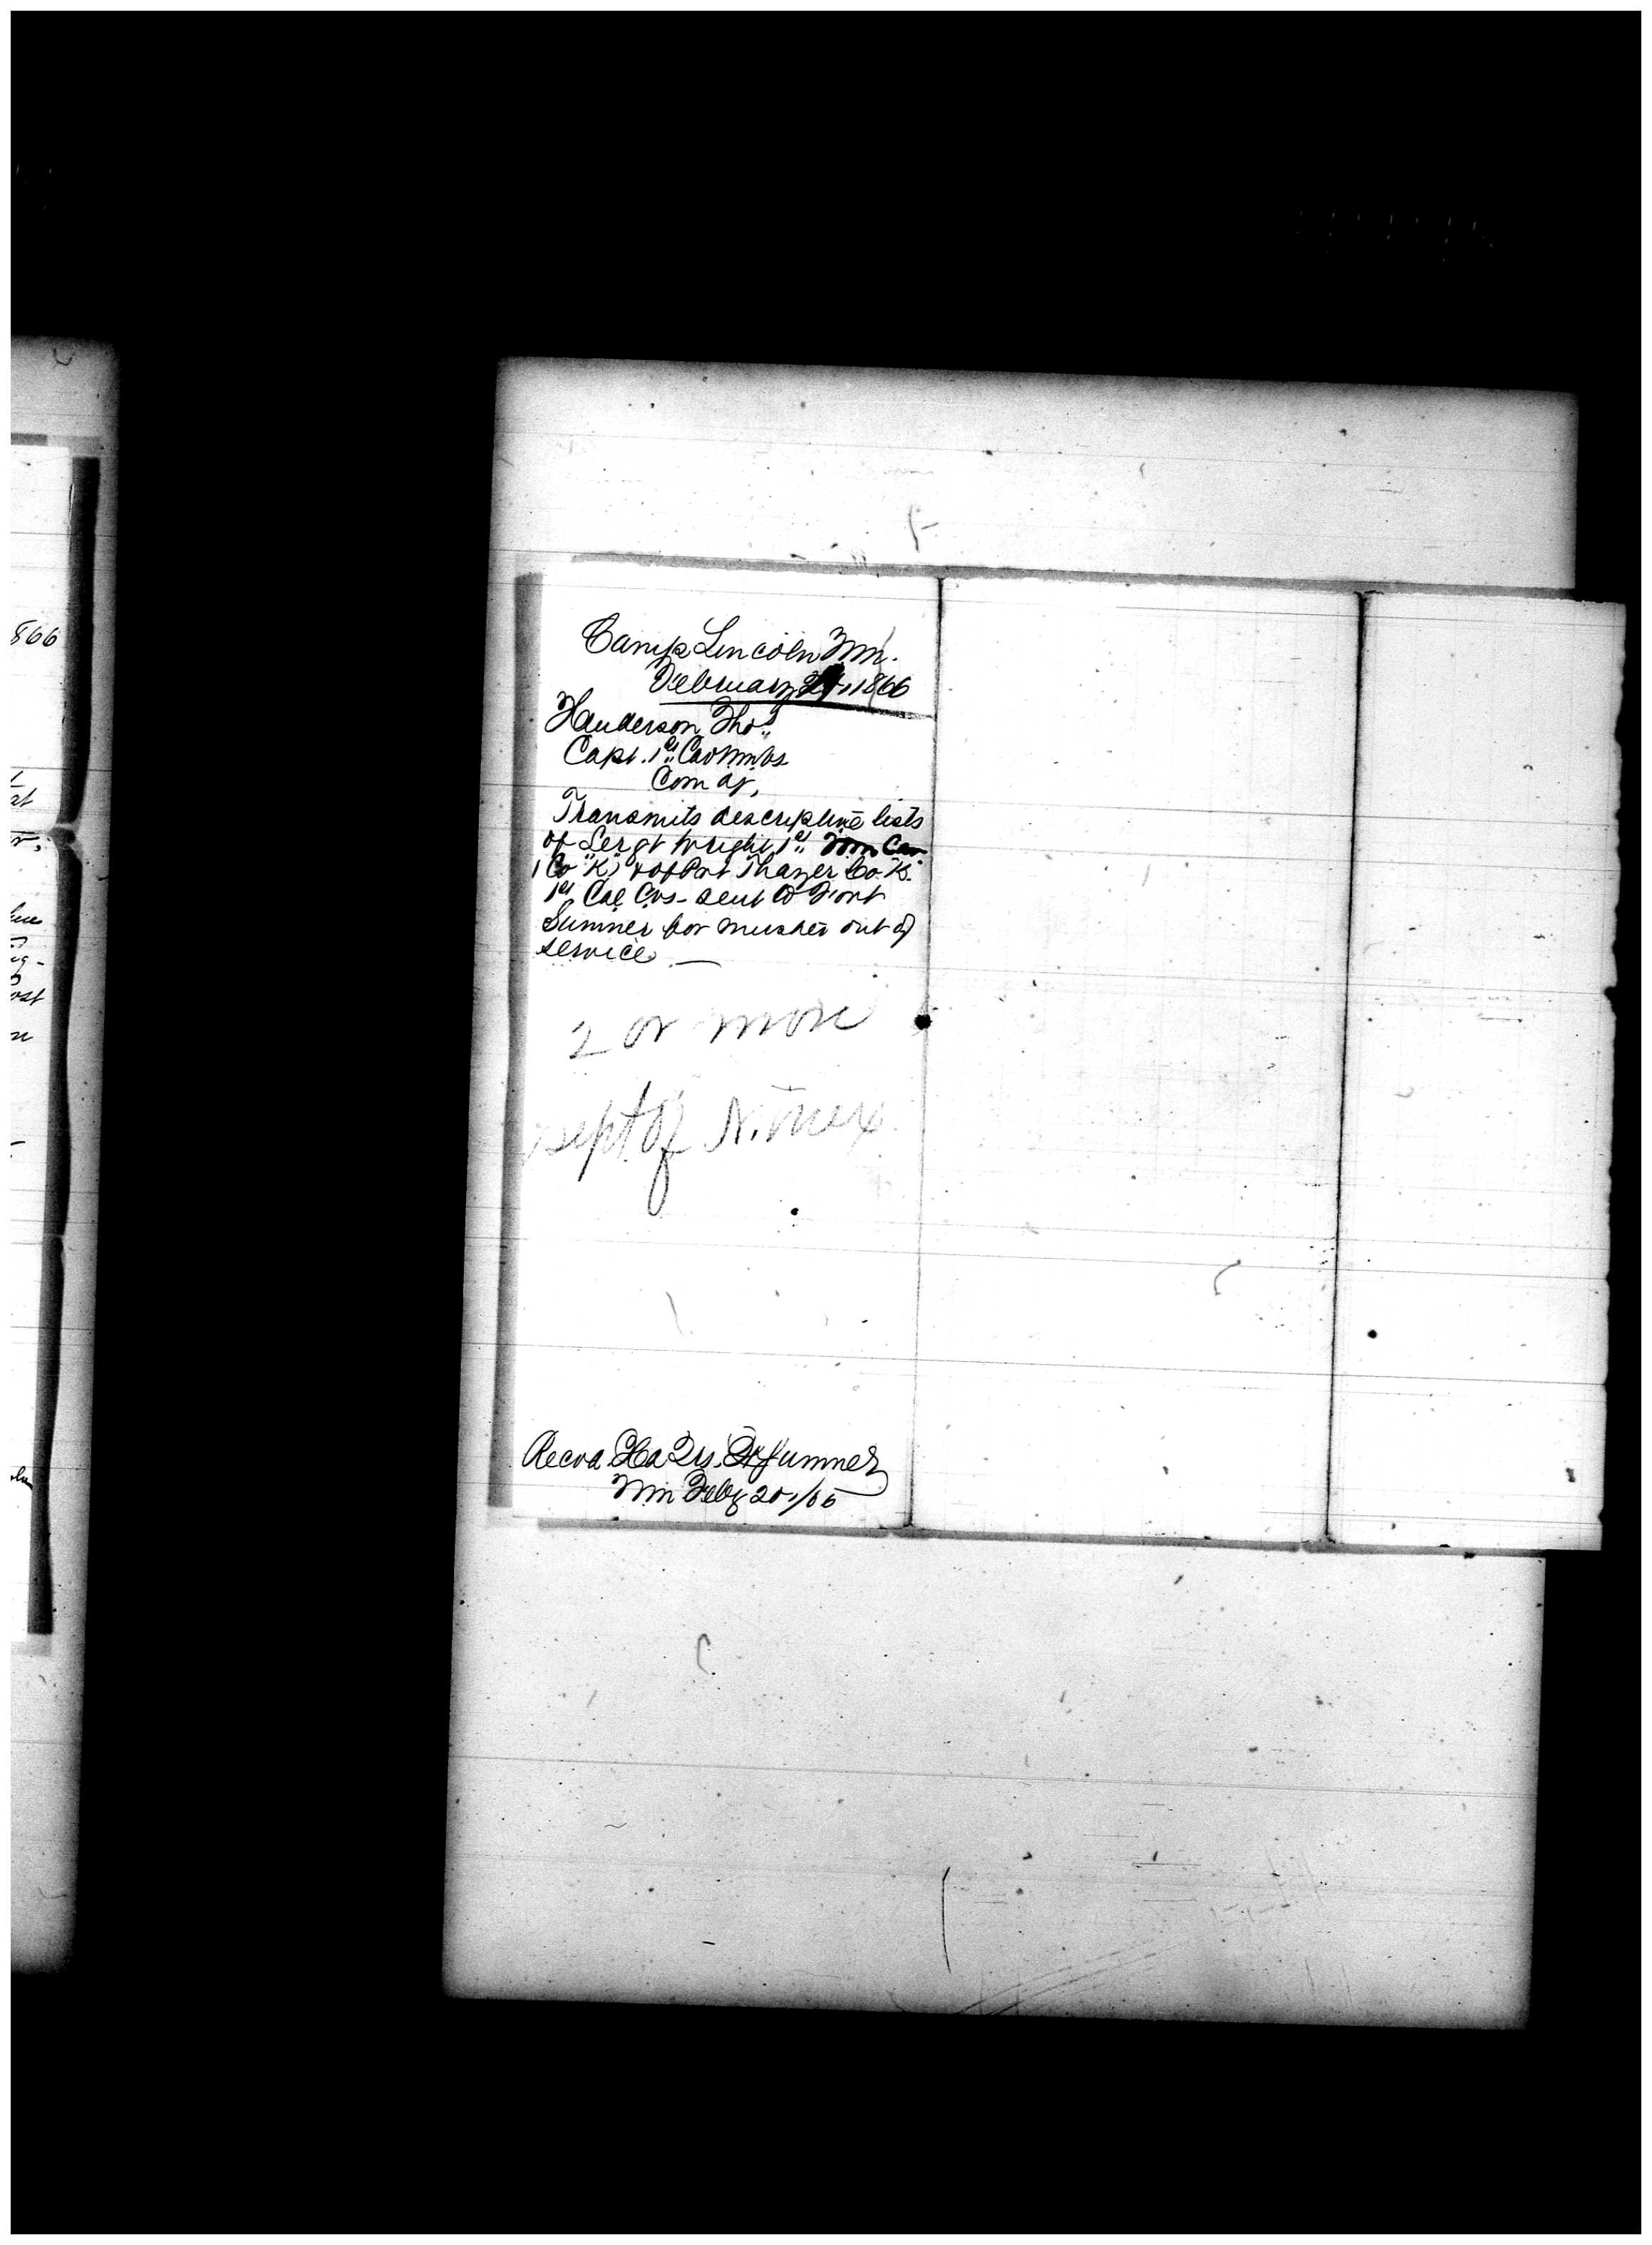 Camp Lincoln N.M.
February 1866
Henderson Tho.s
Capt. 1st Cav N.M. Vols
Com'd'g,
Transmits descriptive lists
of Sergt Wright, 1st N.M. Cav
(Co "K") & of Pvt Thayer Co. K.
1st Cal Cvs - sent to Fort
Sumner for muster out of
service —
2 or more
Dept of N. Mex.
Recvd. Hd Qrs. Ft Sumner
N.M. Feby 20,/66
866